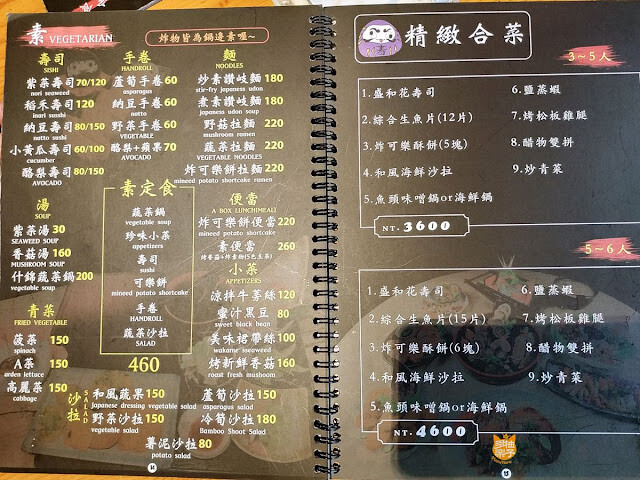 素 VEGETARIAN
炸物皆為鍋邊素喔~
壽司
SISHI
紫菜壽司 70/120
nori seaweed
稻禾壽司 120
inari sushi
納豆壽司 80/150
natto
小黃瓜壽司 60/100
cucumber
酪梨壽司 80/150
AVOCADO
湯
SOUP
紫菜湯 30
SEAWEED SOUP
香菇湯 160
MUSHROOM SOUP
什錦蔬菜鍋 200
青菜
FRIED VEGETABLE
菠菜 150
spinach
A菜 150
arden lettuce
高麗菜 150
cabbage
手卷
HANDROLL
蘆筍手卷 60
asparagus
納豆手卷 60
natto
野菜手卷 60
VEGETABLE
酪梨+蘋果 70
AVOCADO
素定食
蔬菜鍋
vegetable soup
珍味小菜
appetizers
壽司
sushi
可樂餅
mineed potato shortcake
手卷
HANDROLL
蔬菜沙拉
SALAD
460
麵
NOODLES
炒素讚岐麵 180
stir-fry japanese udon
煮素讚岐麵 180
japanese udon soup
野菇拉麵 220
mushroom ramen
蔬菜拉麵 220
VEGETABLE NOODLES
炸可樂餅拉麵 220
mineed potato shortcake ramen
便當
A BOX LUNCH(MEAL)
炸可樂餅便當 220
mineed potato shortcake
素便當 260
小菜
APPETIZERS
涼拌牛蒡絲 120
蜜汁黑豆 80
sweet black bean
美味裙帶絲 100
wakame seaweed
烤新鮮香菇 160
roast fresh mushoom
沙拉
SALAD
和風蔬果 150
Japanese dressing vegetable salad
野菜沙拉 150
vegetable salad
蘆筍沙拉 150
asparagus salad
冷筍沙拉 180
Bamboo Shoot Salad
薯泥沙拉 80
potato salad
精緻合菜
3~5人
1.盛和花壽司
2.綜合生魚片(12片)
3.炸可樂酥餅(5塊)
4.和風海鮮沙拉
5.魚頭味噌鍋or海鮮鍋
6.鹽蒸蝦
7.烤松板雞腿
8.醋物雙拼
9.炒青菜
NT. 3600
5~6人
1.盛和花壽司
2.綜合生魚片(15片)
3.炸可樂酥餅(6塊)
4.和風海鮮沙拉
5.魚頭味噌鍋or海鮮鍋
6.鹽蒸蝦
7.烤松板雞腿
8.醋物雙拼
9.炒青菜
NT. 4600